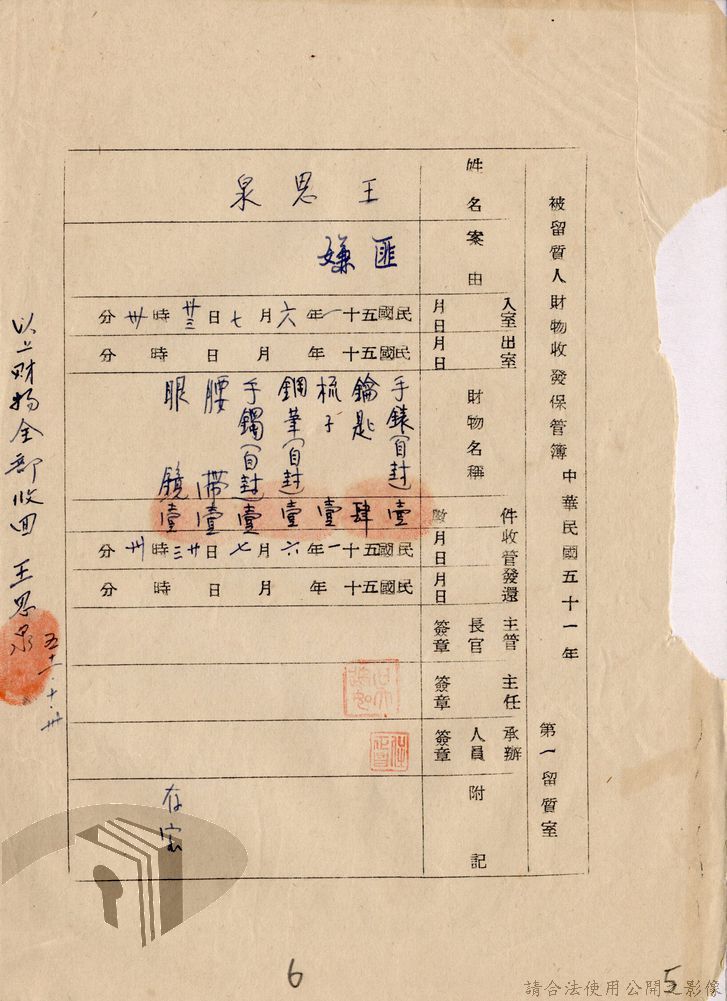 被留質人財物收發保管簿 中華民國五十一年 第一留質室
姓名
王思泉
案由
匪嫌
入室月日
民國五十一年六月七日廿三時卅分
出室月日
民國五十 年 月 日 時 分
財物名稱
件數
手錶(自封) 壹
鑰匙 肆
梳子 壹
鋼筆(自封) 壹
手鐲(自封) 壹
腰帶 壹
眼鏡 壹
收管月日
民國五十一年六月七日廿三時卅分
發還月日
民國五十 年 月 日 時 分
主管長官簽章
主任簽章
承辦人員簽章
附記
存室
以上財物全部收回 王思泉
五十一.十.卅
6
5
請合法使用公開之影像